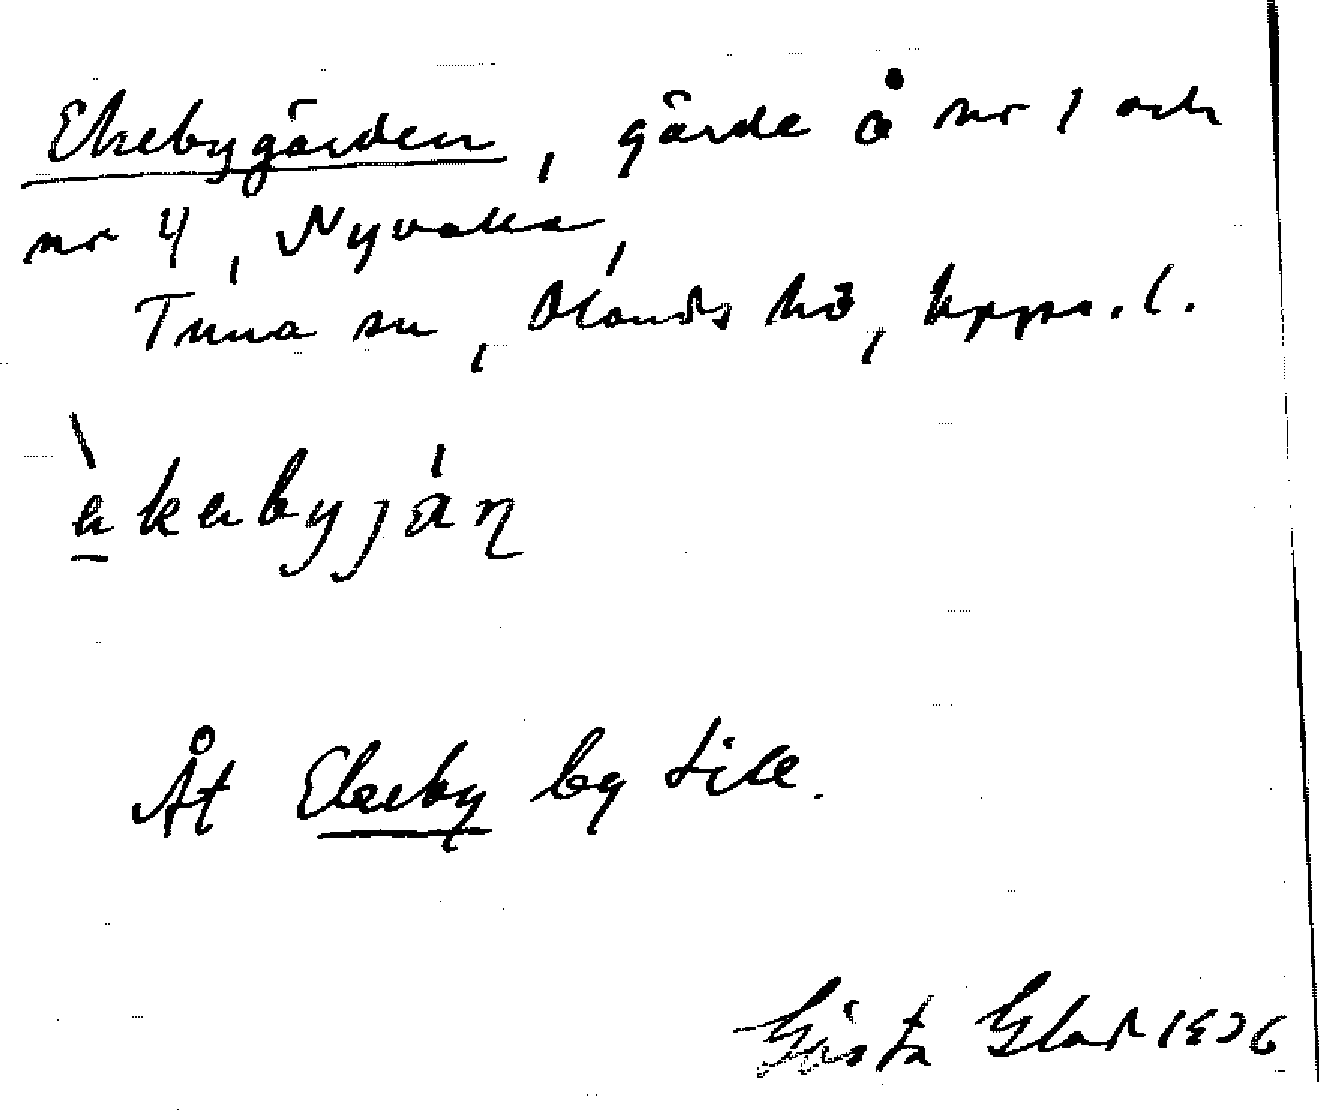 Ekebygärden, gärde å nr 1 och
nr 4, Nyvalla,
Tuna sn, Olands hd, Upps. l.
èkebyjáɳ
Åt Ekeby by till.
Gösta Glad 1926